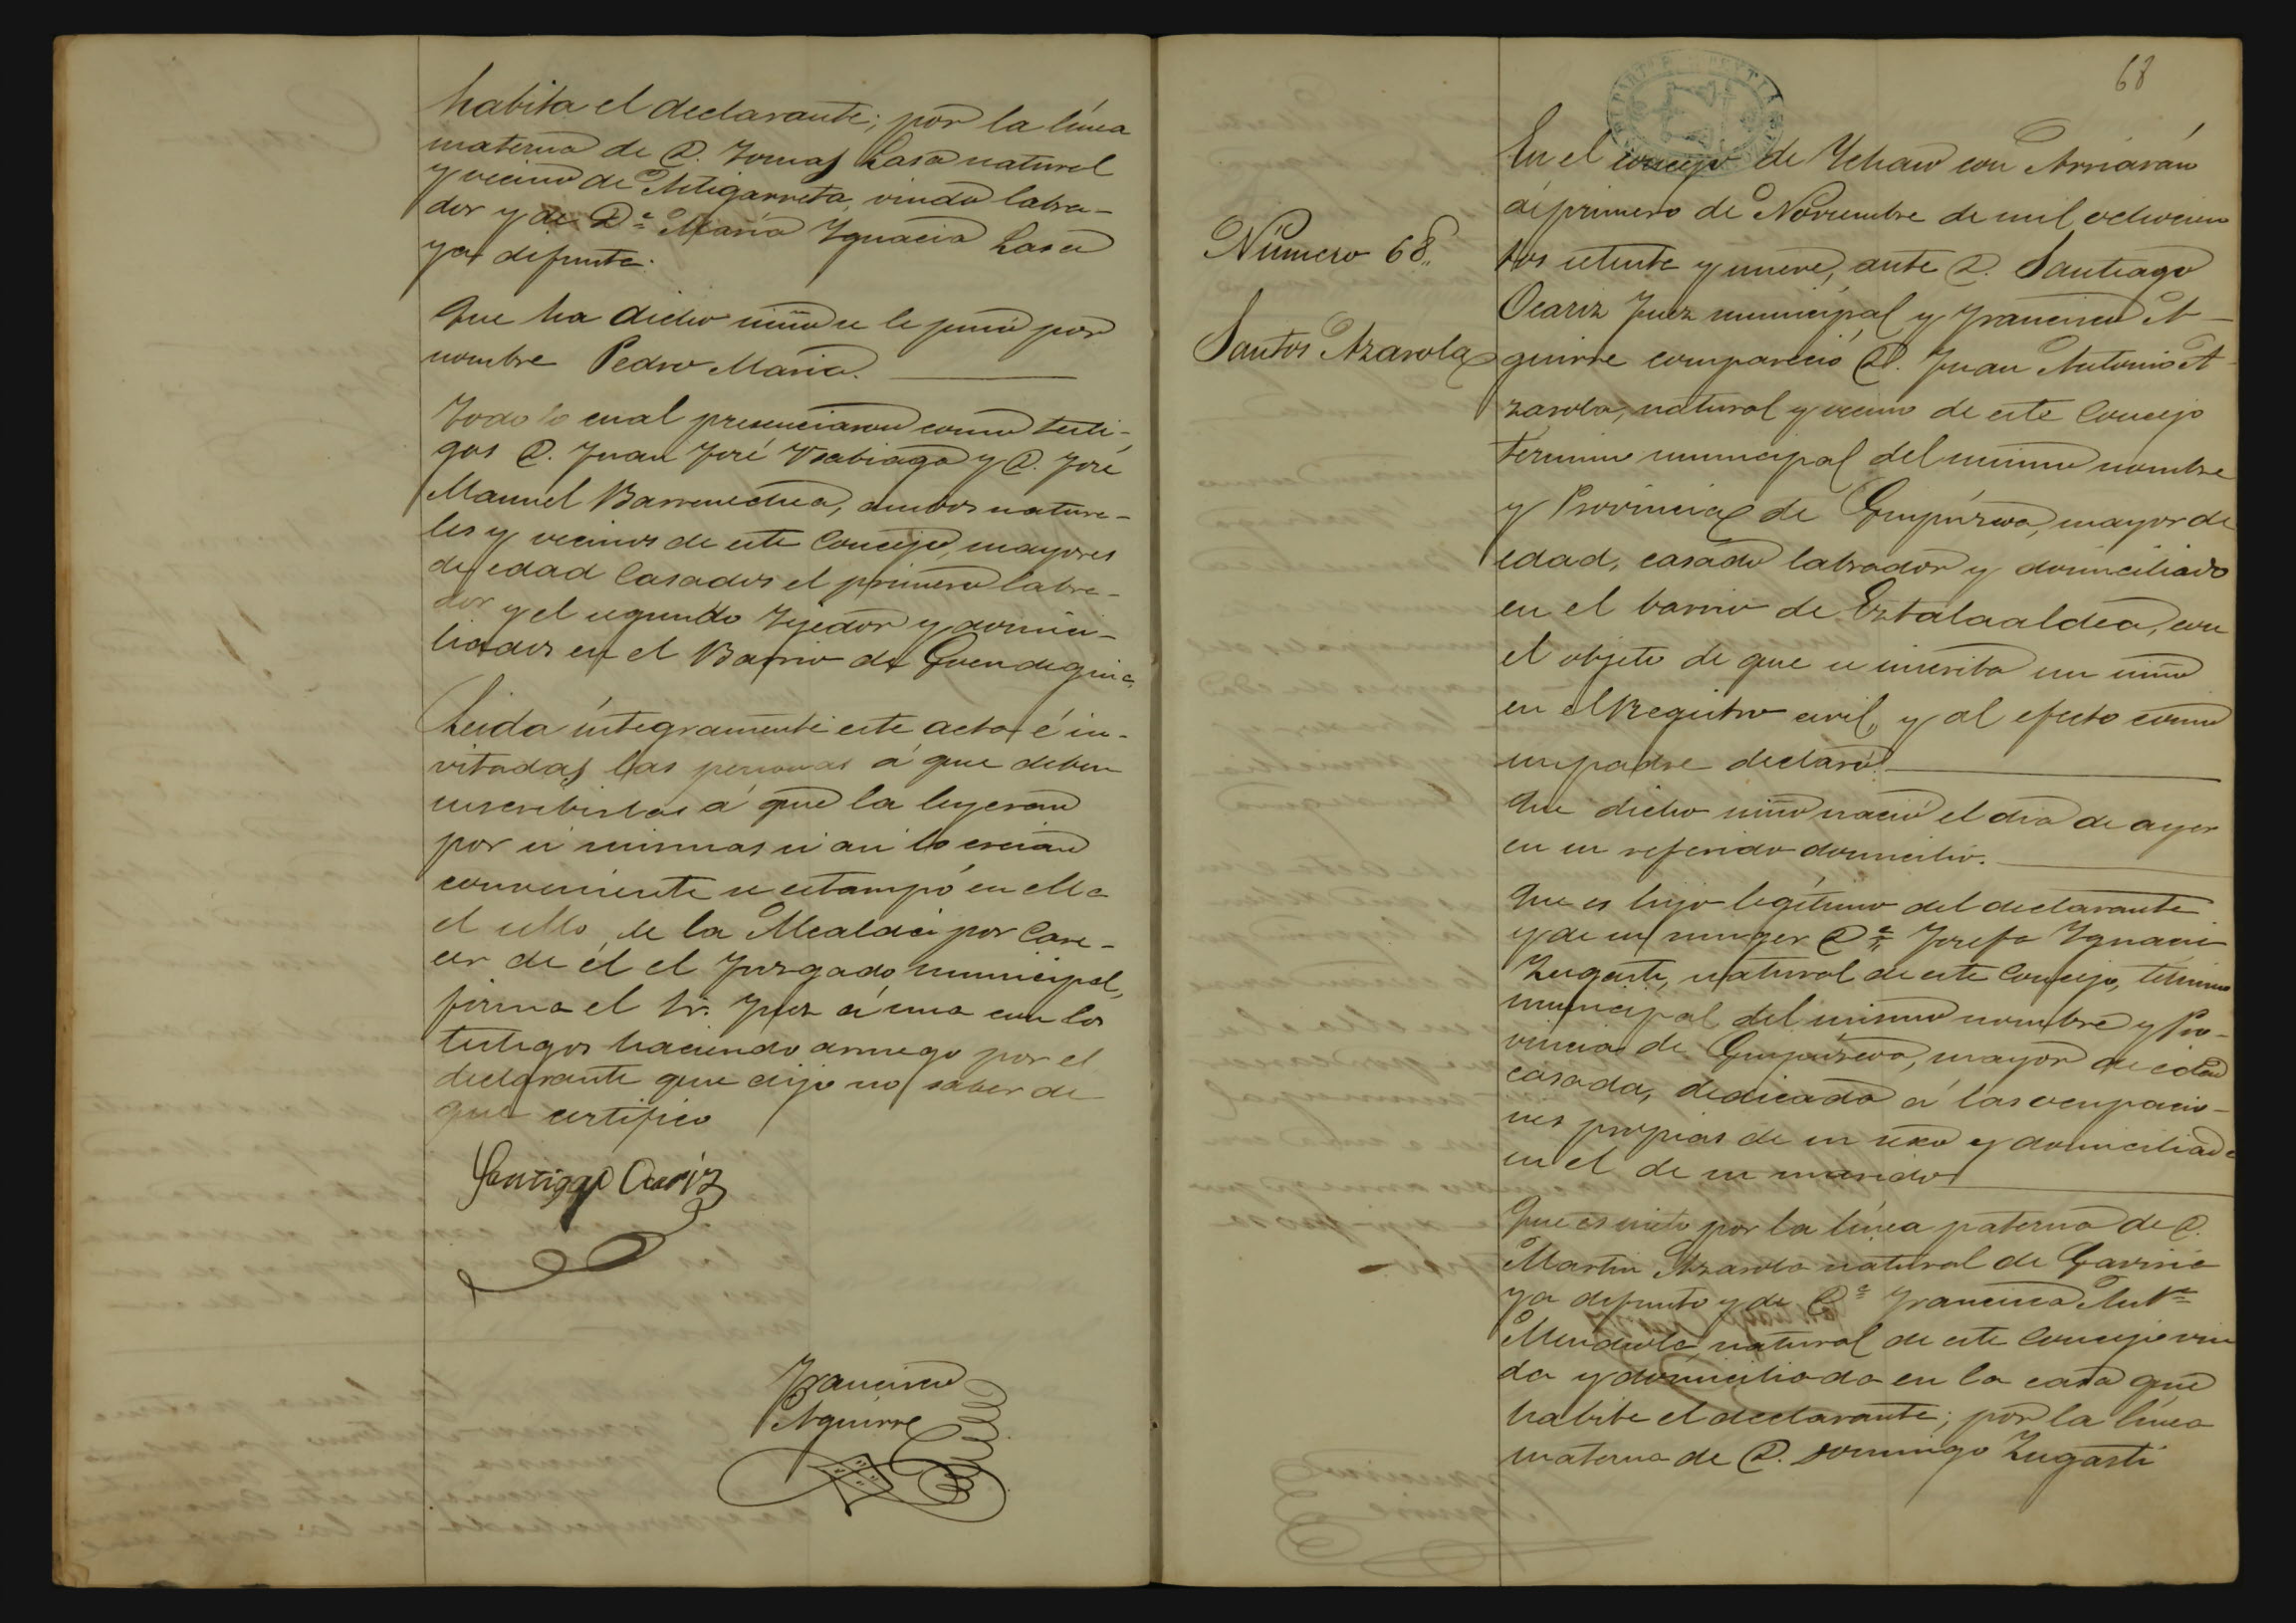 habita el declarante; por la línea
materna de D. Tomas Lasa natural
y vecino de Astigarreta, viudo labra-
dor y de Dª María Ygnacia Lasa
ya difunta.
Que ha dicho niño se le puso por
nombre Pedro María.
Todo lo cual presenciaron como testi-
gos D. Juan José Usabiaga y D. José
Manuel Barrenechea, ambos natura-
les y vecinos de este Concejo, mayores
de edad Casados el primero labra-
dor y el segundo Tejedor y domici-
liados en el Barrio de
Leida íntegramente este acta é in-
vitadas las personas á que deben
suscribirlas á que la leyeran
por si mismas si asi lo creian
conveniente se estampó en ella
el sello de la Alcaldia por Care-
cer de él el Juzgado municipal,
firma el Sr. Juez á una con los
testigos haciendo arruego por el
declarante que dijo no saber de
que certifico
Santiago Ocariz
Francisco
Aguirre
68
Número 68.
Santos Azarola
En el concejo de Ychaso con Arriarán
á primero de Noviembre de mil ochocien
tos setenta y nueve, ante D. Santiago
Ocariz Juez municipal y Francisco A-
guirre compareció D. Juan Antonio A-
zarola, natural y vecino de este Concejo
término municipal del mismo nombre
y Provincia de Guipúzcoa, mayor de
edad, casado labrador y domiciliado
en el barrio de Eztalaaldea, con
el objeto de que se inscriba un niño
en el Registro civil, y al efecto como
su padre declaró:
Que dicho niño nació el dia de ayer
en su referido domicilio.
Que es hijo legítimo del declarante
y de su muger Dª Josefa Ygnacia
Zugasti, natural de este Concejo, término
municipal del mismo nombre y Pro-
vincia de Guipúzcoa, mayor de edad
casada, dedicada á las ocupacio-
nes propias de su sexo y domiciliada
en el de su marido
Que es nieto por la línea paterna de D.
Martin Azarola natural de Gaviria
ya difunto y de Dª Francisca Antª
Mendiola, natural de este Concejo viu
da y domiciliada en la casa que
habita el declarante; por la línea
materna de D. Domingo Zugasti